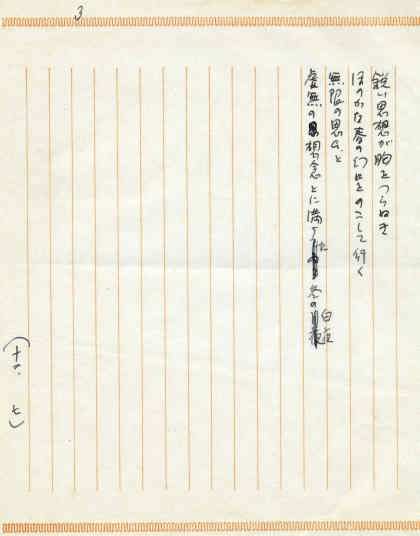 3
鋭い思想が胸をつらぬき
ほのかな春の幻影をのこして行く
無限の思ひと
虚無の想念とに満ちた
春の白夜
(十六、七)